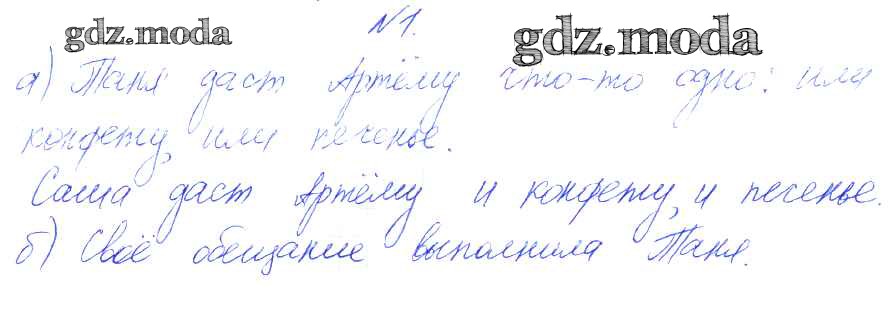 gdz.moda №1. gdz.moda
а) Таня даст Артёму что-то одно: или
конфету, или печенье.
Саша даст Артёму и конфету, и печенье.
б) Своё обещание выполнила Таня.